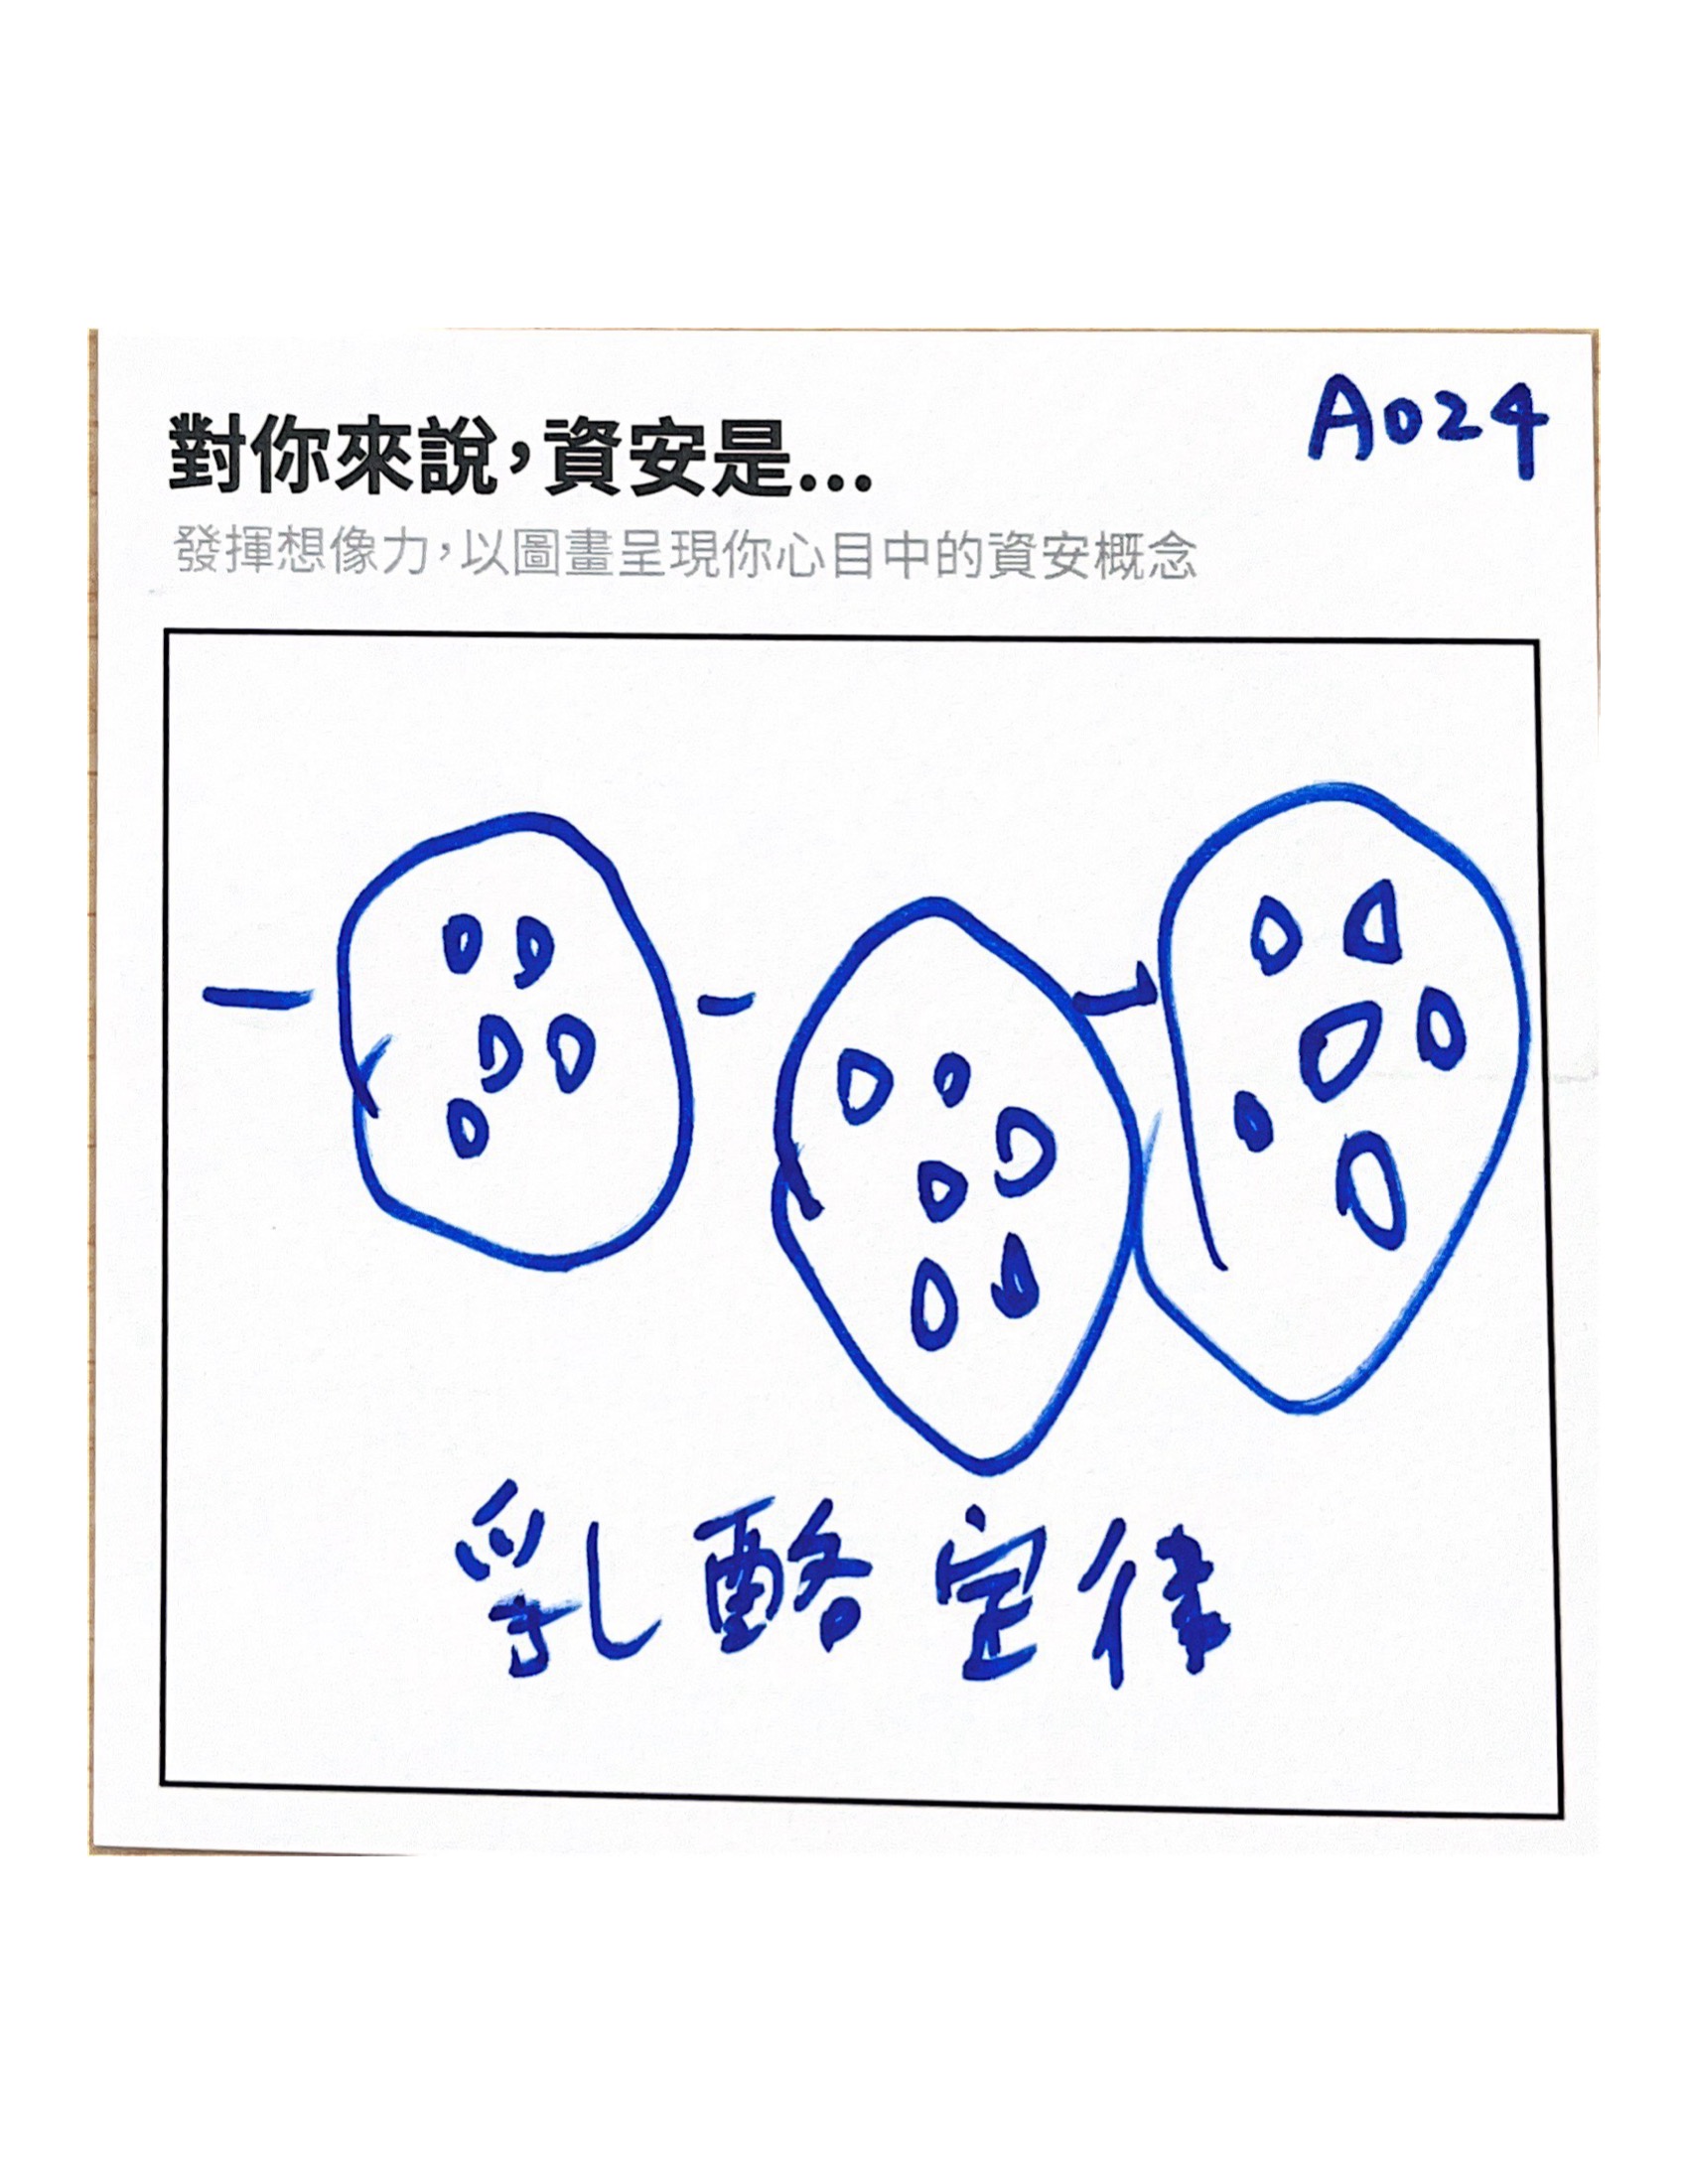 A024
對你來說，資安是...
發揮想像力，以圖畫呈現你心目中的資安概念
乳酪定律